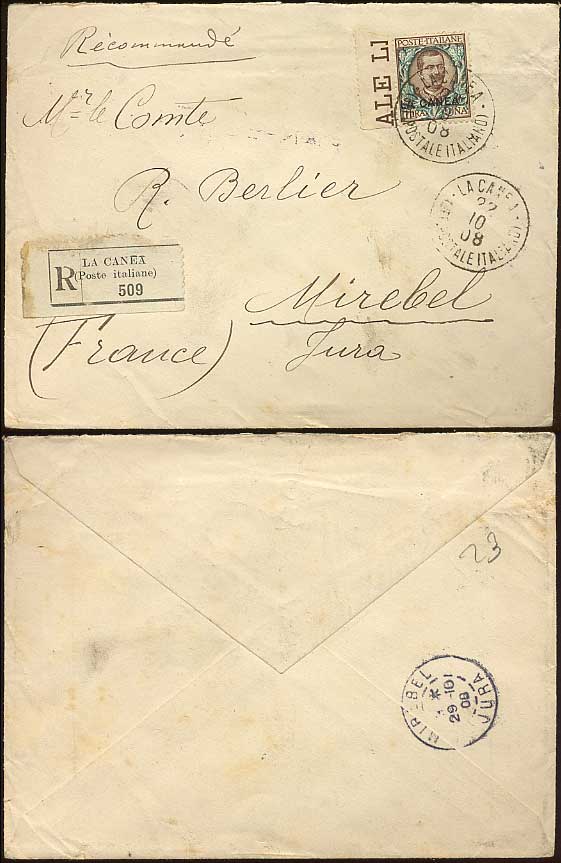 Récommandé
ALE LI
POSTE·ITALIANE
LA CANEA
LIRA UNA
08
POSTALE ITALIANO)
Mr le Comte
R. Berlier
· LA CANEA ·
22
10
08
POSTALE ITALIANO)
LA CANEA
R (Poste italiane)
509
Mirebel
(France) Jura
23
MIREBEL
*
29-10
08
JURA